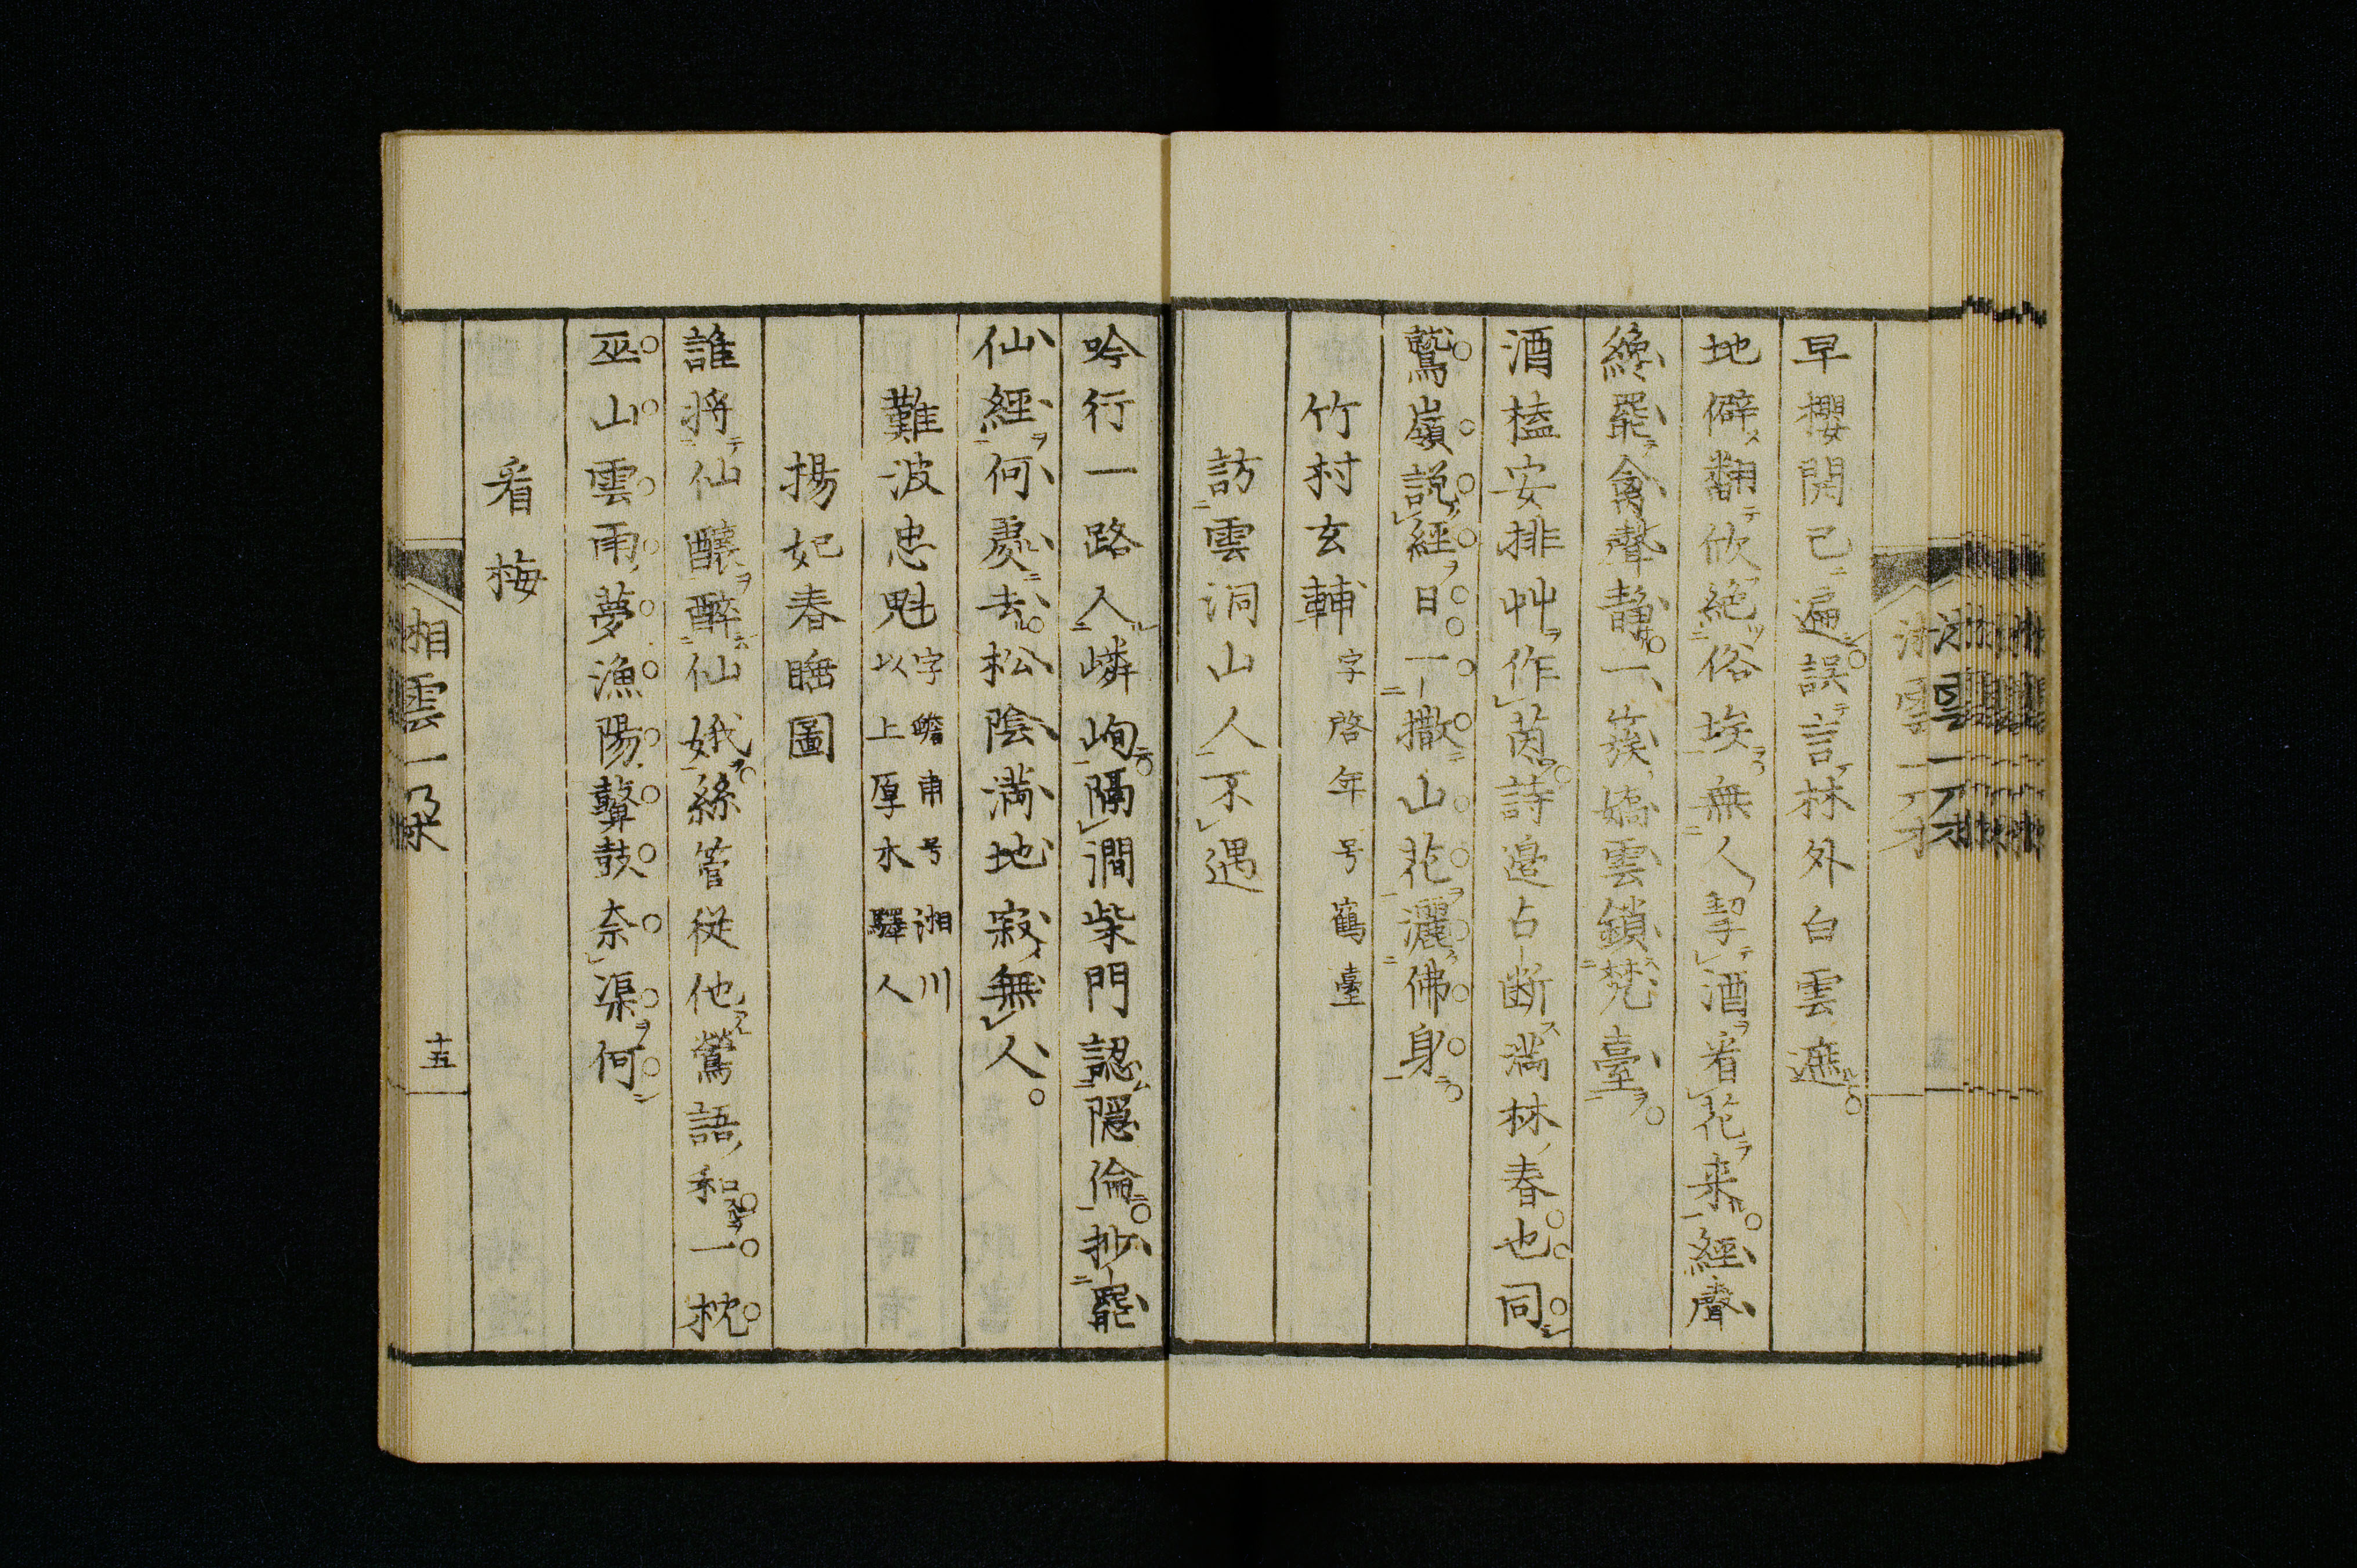 早櫻開已遍誤言林外白雲遮
地僻翻欣絶俗埃無人挈酒看花来經聲
纔罷禽聲静一簇嬌雲鎖梵臺
酒榼安排艸作茵詩邉占断満林春也同
鷲嶺説經日一撒山花灑佛身
竹村玄輔 字啓年号鶴臺
訪雲洞山人不遇
吟行一路入嶙峋隔澗柴門認隠倫抄罷
仙經何処去松陰満地寂無人
難波忠魁 字蟾甫号湘川
以上厚木驛人
揚妃春睡圖
誰將仙醸醉仙娥絲管従他鶯語和一枕
巫山雲雨夢漁陽鼙鼓奈渠何
看梅
湘雲一朶
十五